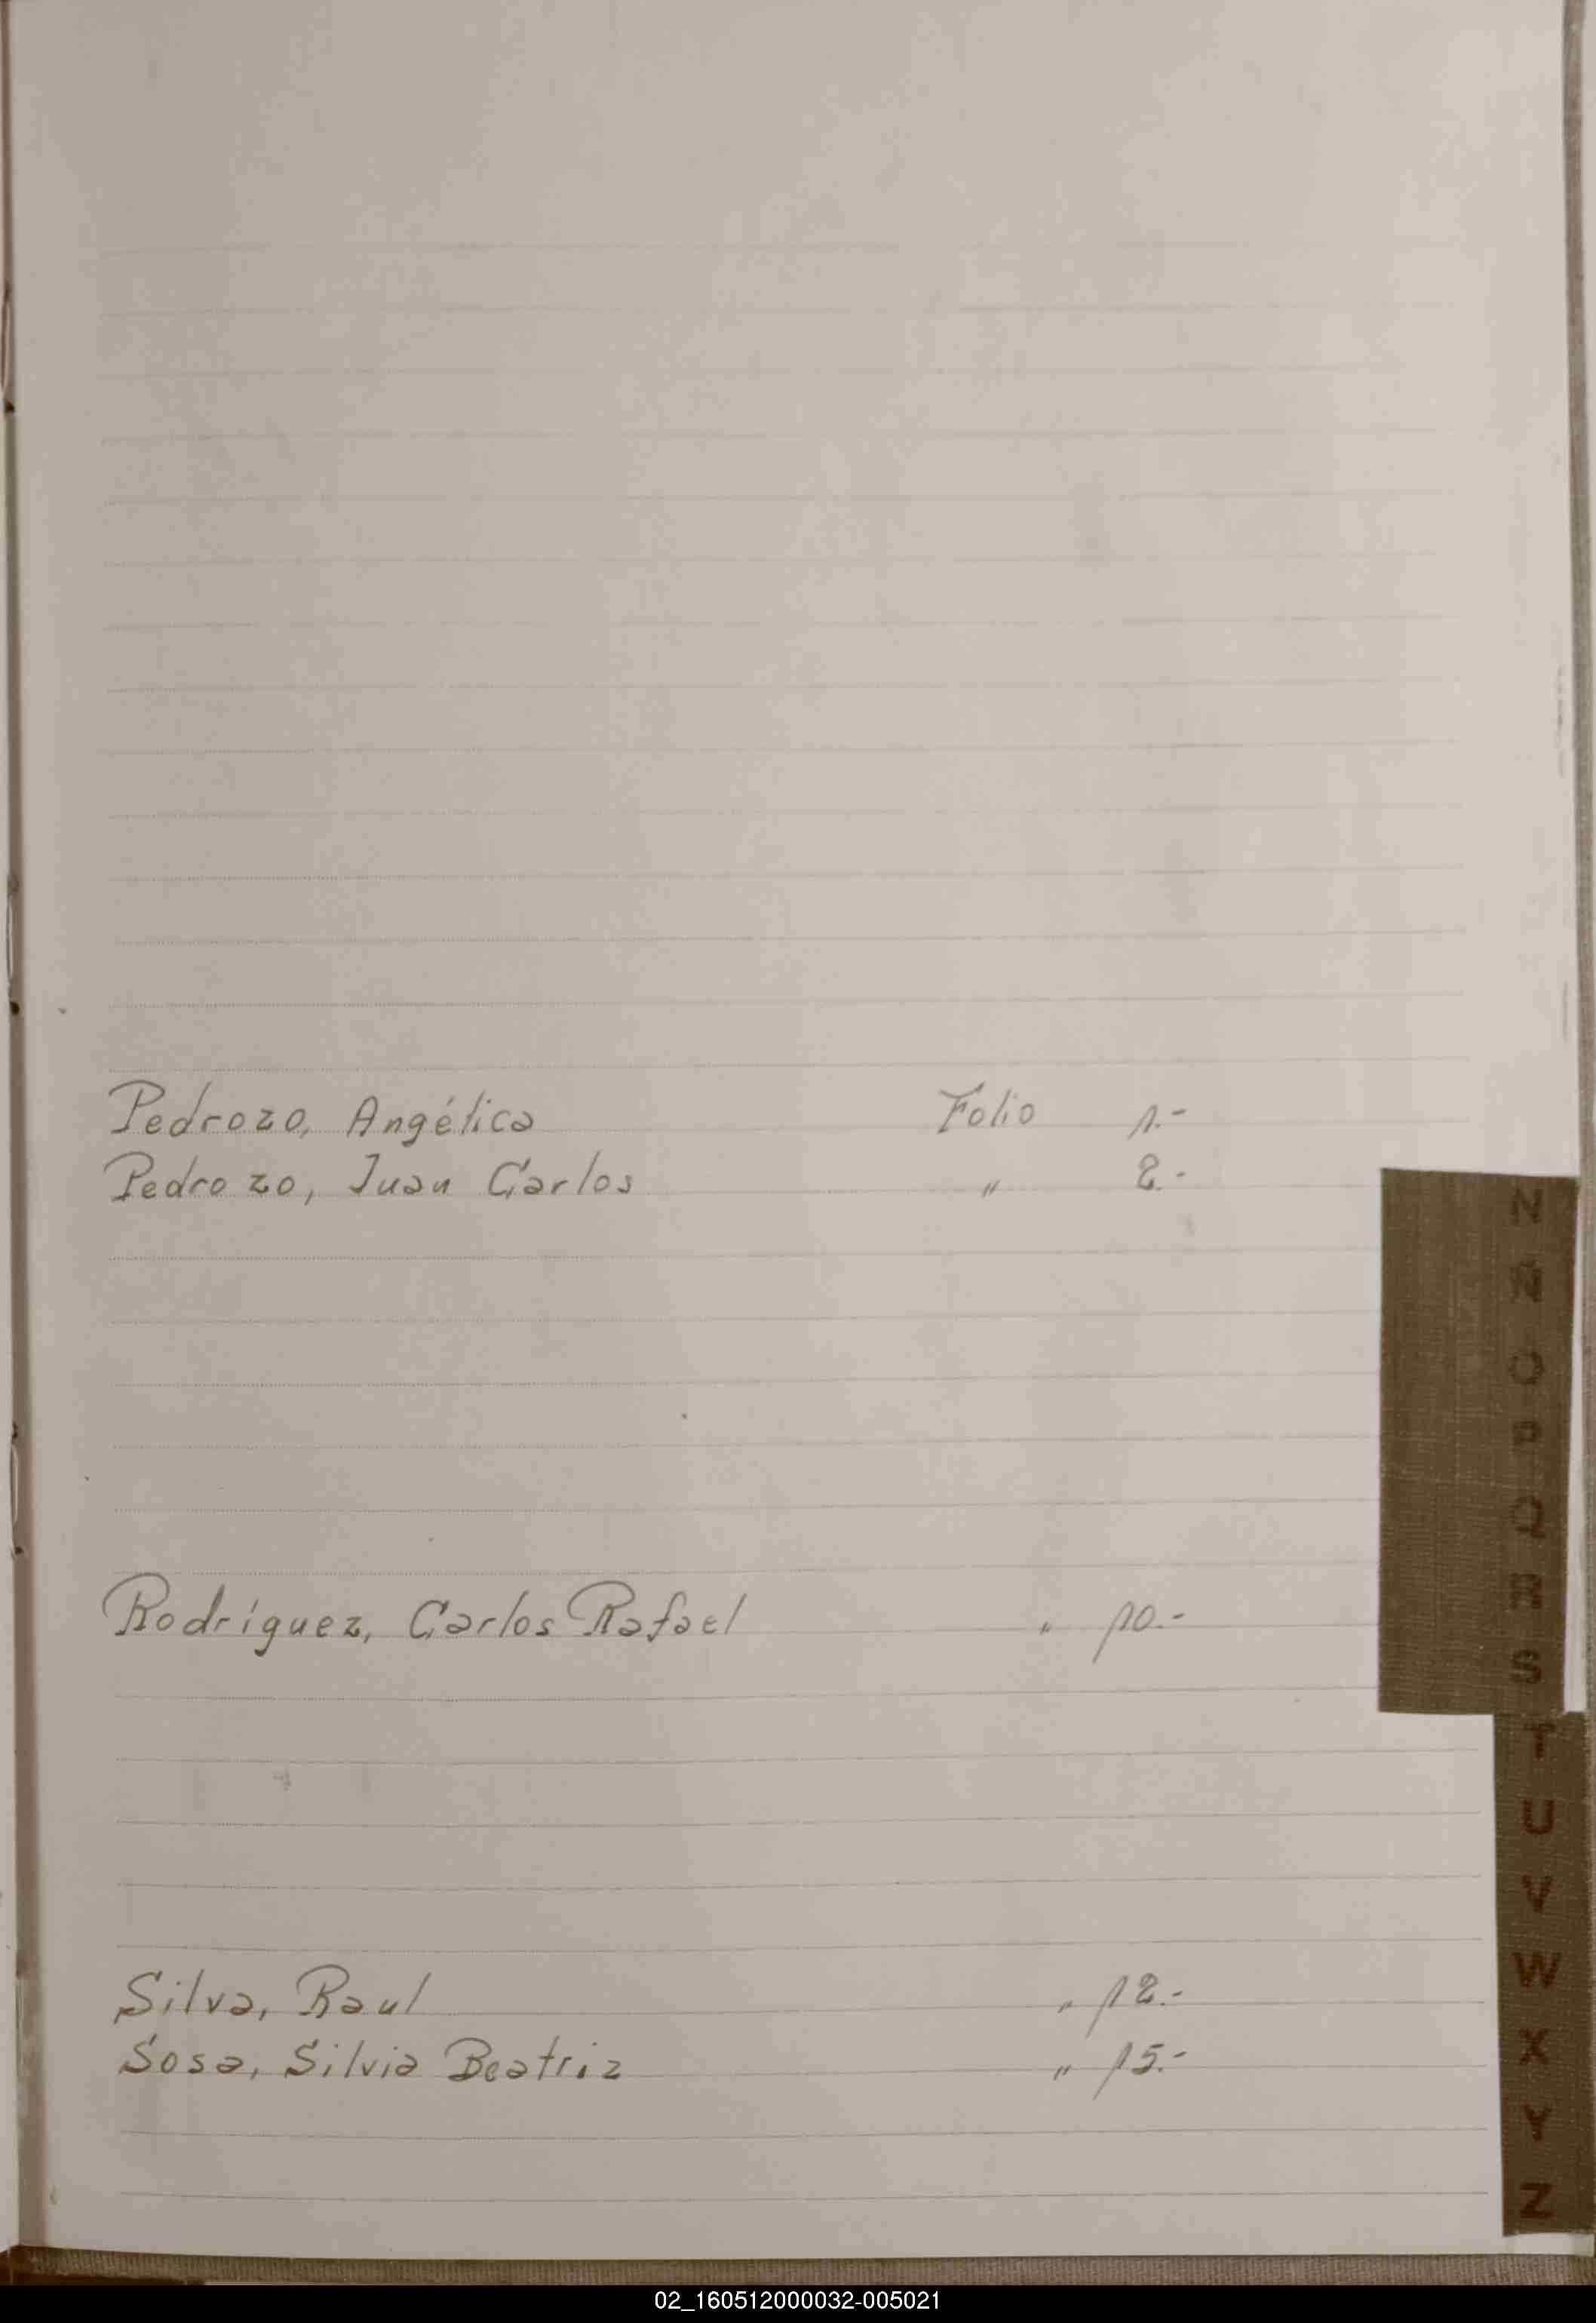 Pedrozo, Angélica Folio 1.-
Pedrozo, Juan Carlos " 2.-
N
Ñ
O
P
Q
R
Rodríguez, Carlos Rafael " 10.-
S
T
U
V
W
Silva, Raul " 12.-
X
Sosa, Silvia Beatriz " 15.-
Y
Z
02_160512000032-005021